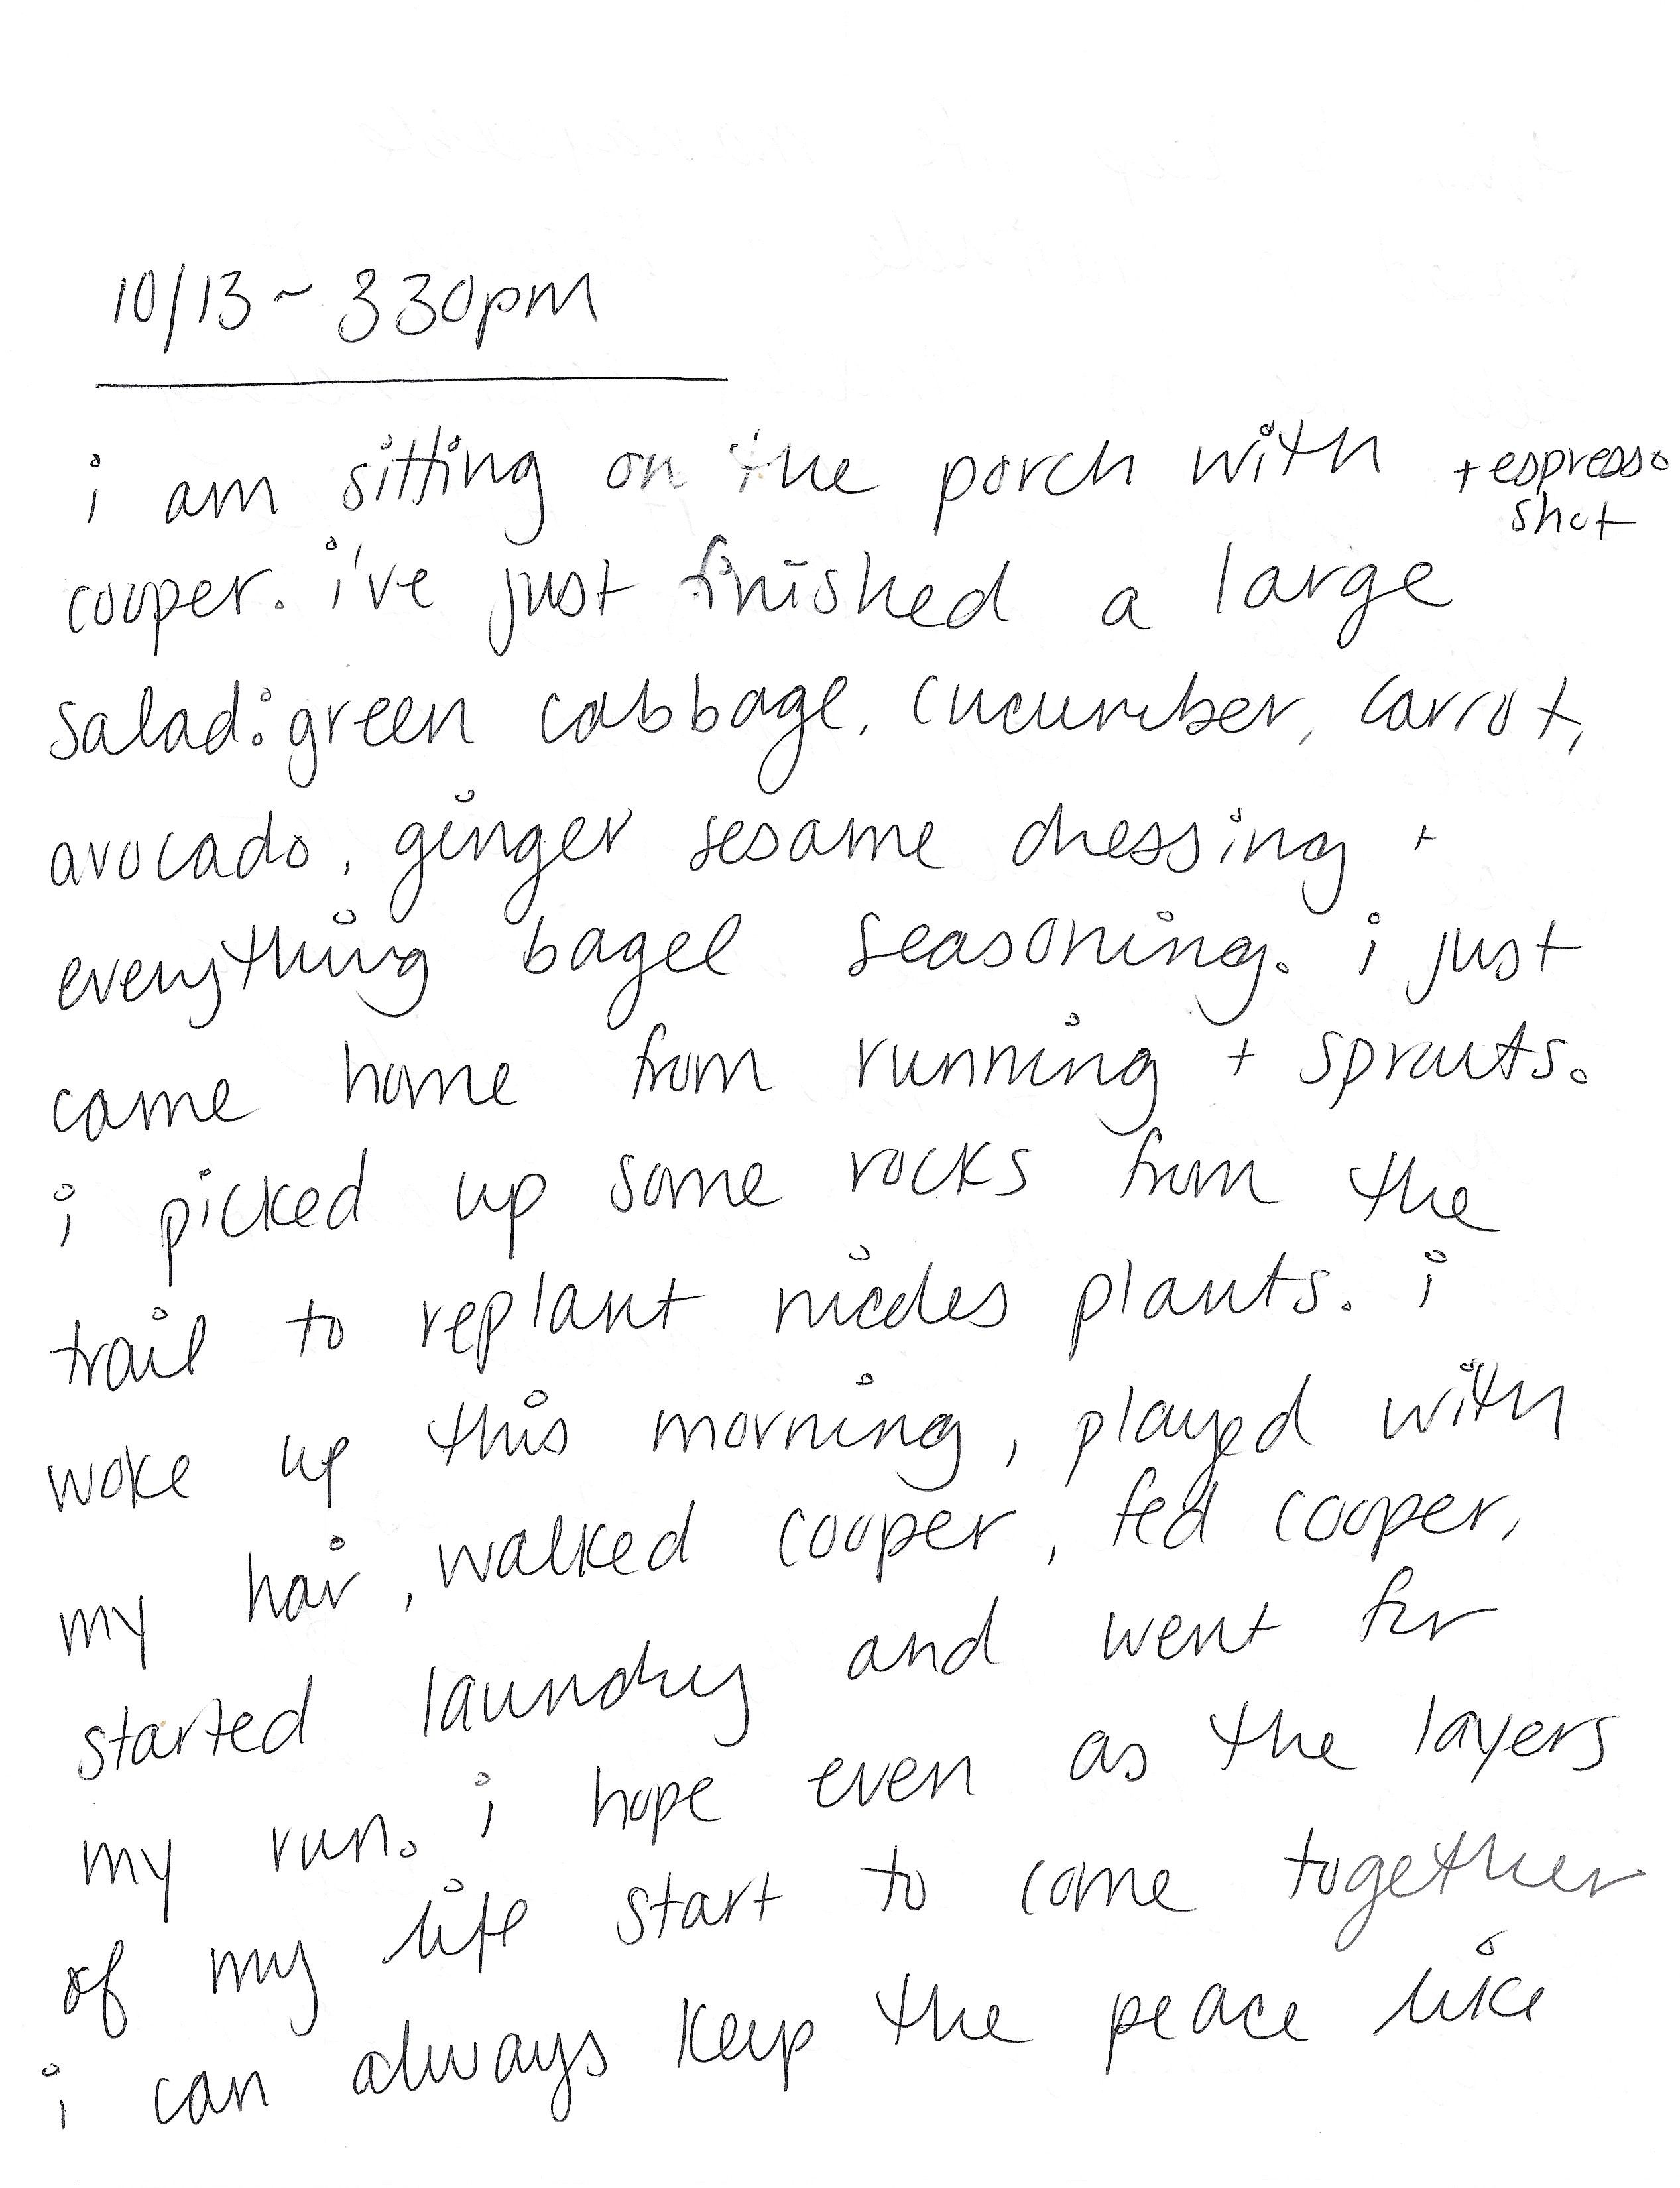 10/13 ~ 330pm
i am sitting on the porch with
+ espresso
shot
cooper. i've just finished a large
salad: green cabbage, cucumber, carrot,
avocado, ginger sesame dressing +
everything bagel seasoning. i just
came home from running + sprouts.
i picked up some rocks from the
trail to replant nicoles plants. i
woke up this morning, played with
my hair, walked cooper, fed cooper,
started laundry and went for
my run. i hope even as the layers
of my life start to come together
i can always keep the peace like